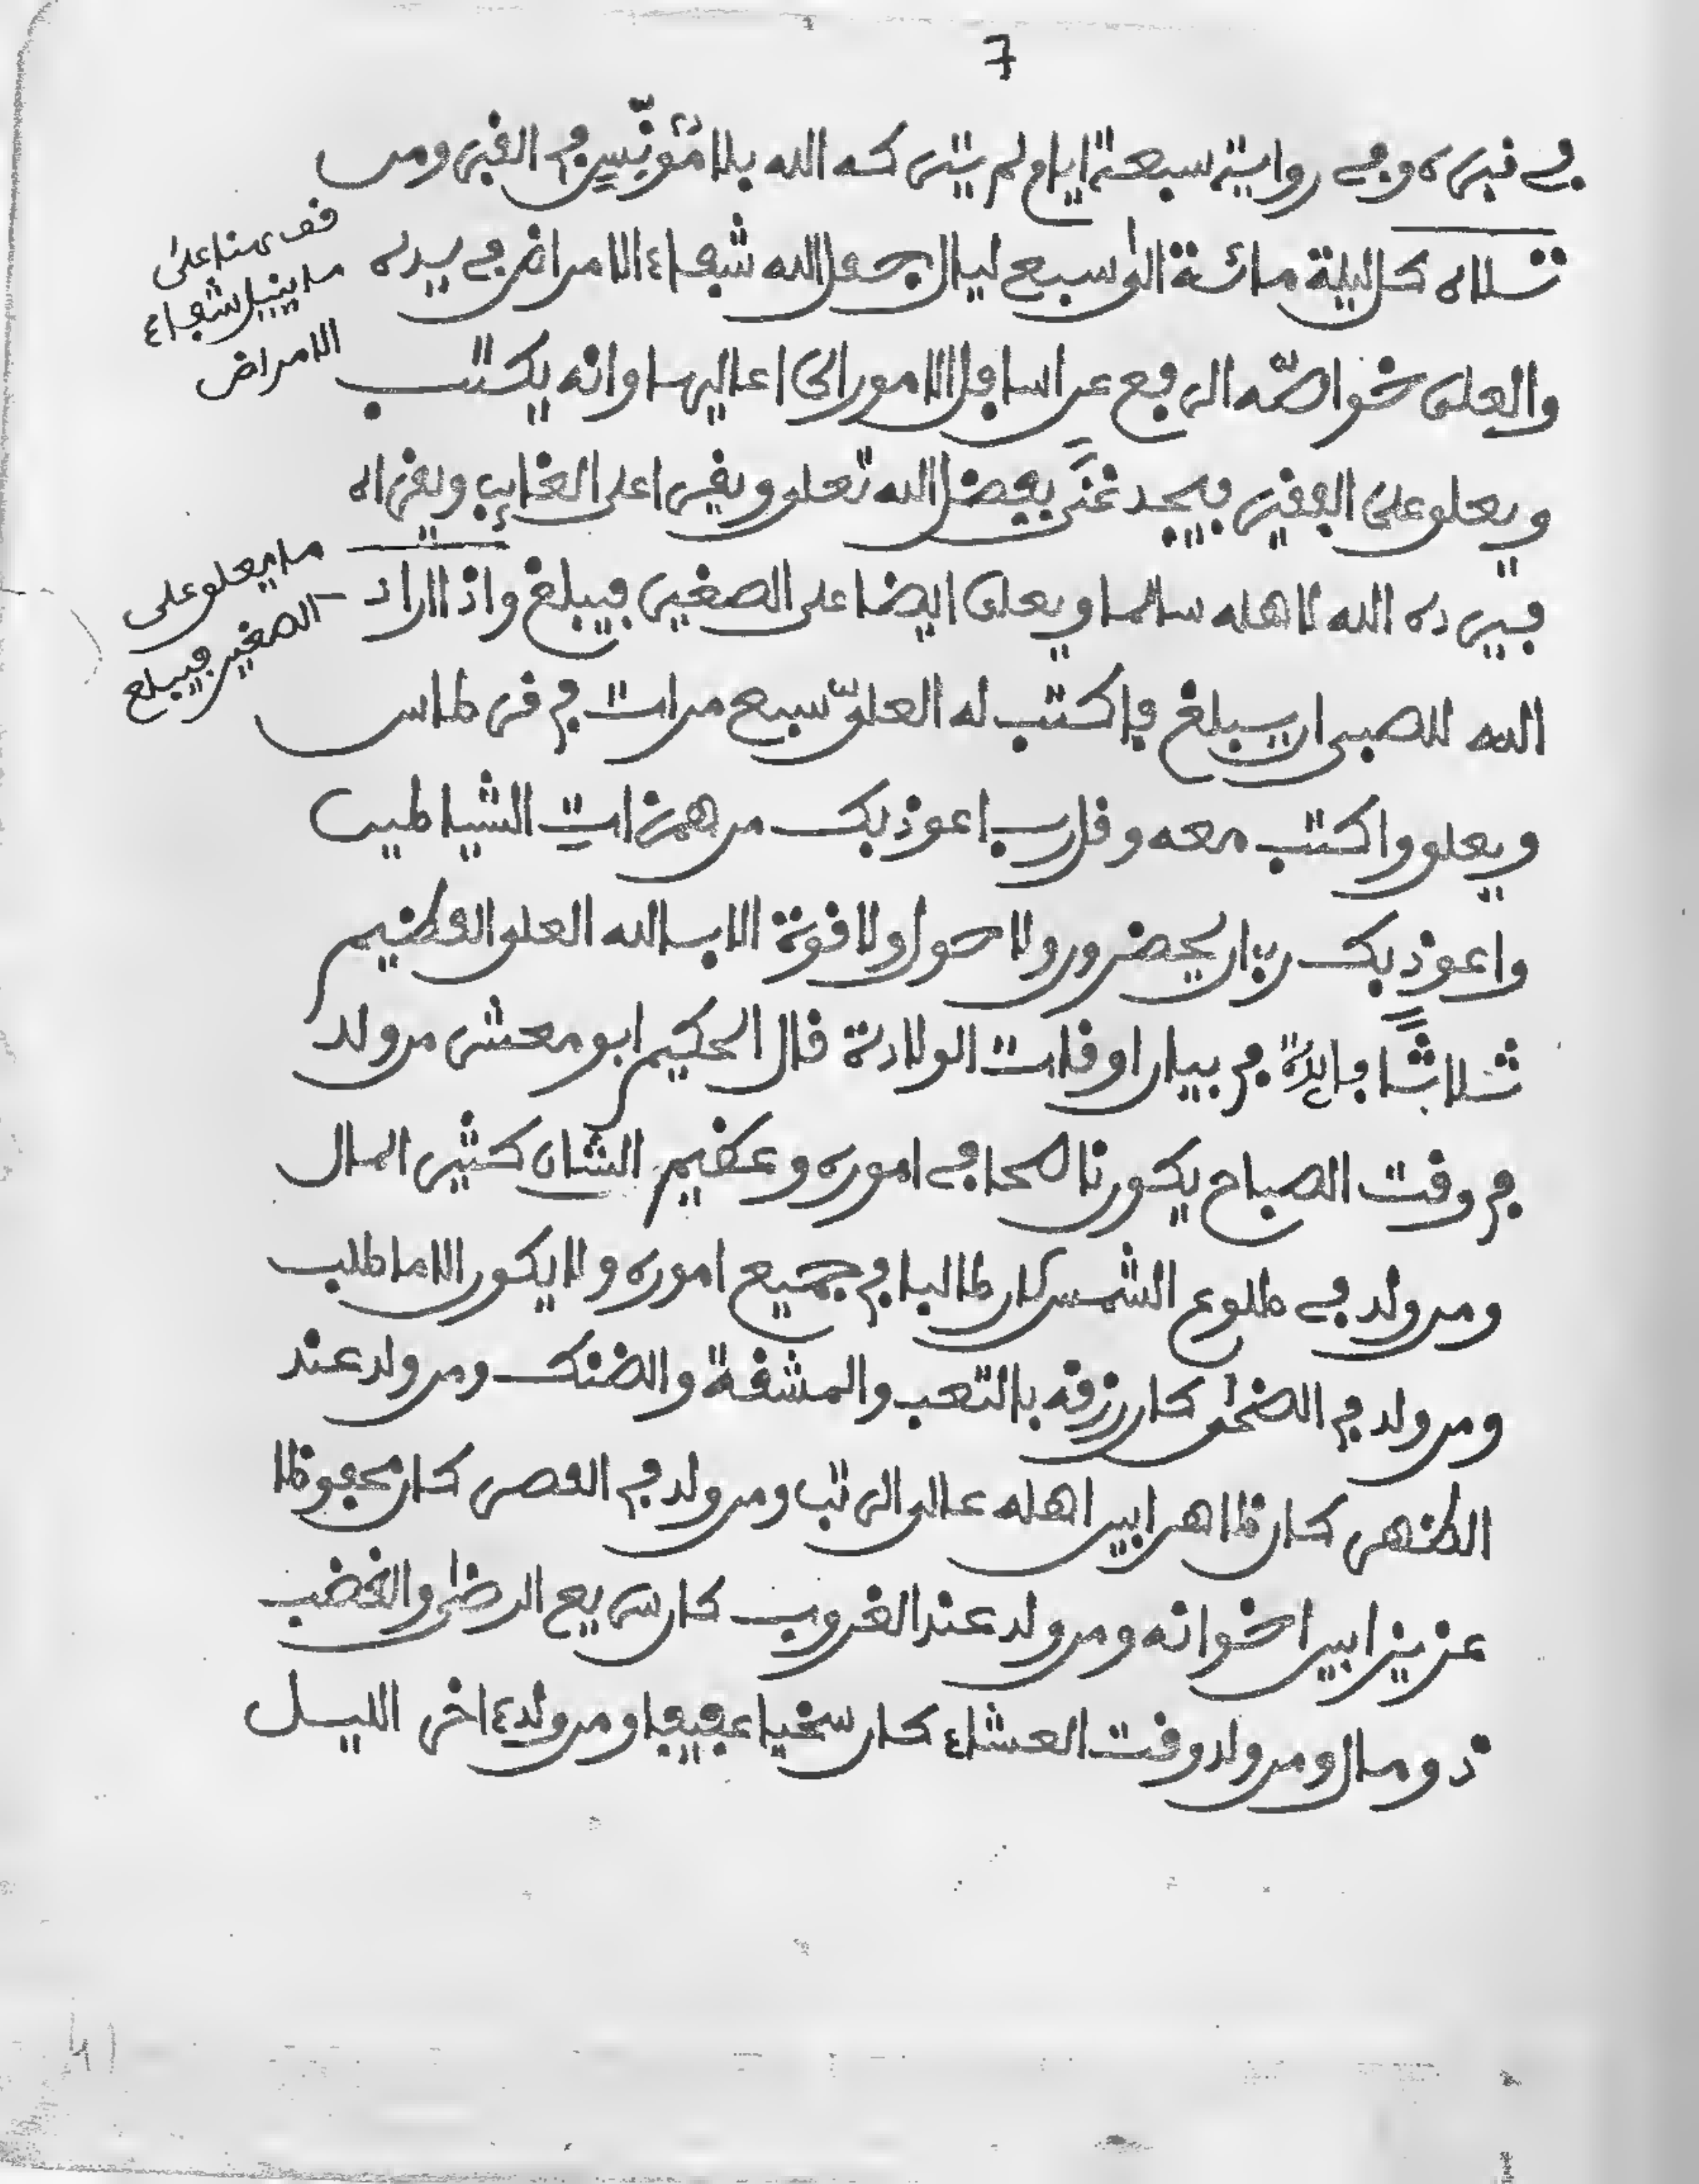 7
في قبره وفي رواية سبعة ايام لم يتركه الله بلا مؤنس في القبر ومن
تلاه كل ليلة مائة الى سبع ليال جعل الله شفاء الامراض في يده
قف هنا على
ما ينيل شفاء
الامراض
والعلي خواصّه الرفع عن اسافل الامور الى اعاليها وانه يكتب
ويعلق على الفقير فيجد غنًى بفضل الله تعلى ويقرا على الغايب ويقراه
فيرده الله لاهله سالما ويعلق ايضا على الصغير فيبلغ واذا اراد
ما يعلق على
الصغير فيبلغ
الله للصبي ان يبلغ فاكتب له العليّ سبع مرات في قرطاس
ويعلق واكتب معه وقل رب اعوذ بك من همزاتِ الشياطين
واعوذ بك رب ان يحضرون ولا حول ولا قوة الا بالله العلي العظيم
ثلاثًا فايدة في بيان اوقات الولادة قال الحكيم ابو معشر من ولد
في وقت الصباح يكون ناصحا في اموره وعظيم الشان كثير المال
ومن ولد في طلوع الشمس كان طالبا في جميع اموره ولا يكون الا ما طلب
ومن ولد في الضحى كان رزقه بالتعب والمشقة والضنك ومن ولد عند
الظهر كان ظاهرا بين اهله عالي الرتب ومن ولد في العصر كان محفوظا
عزيزا بين اخوانه ومن ولد عند الغروب كان سريع الرضى والغضب
ذو مال ومن ولد وقت العشاء كان سخيا عفيفا ومن ولد ءاخر الليل